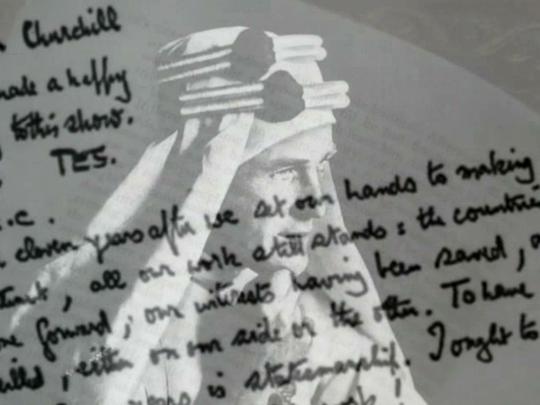 Churchill
made a happy
to this show.
TES.
eleven years after we set our hands to making
, all our work still stands: the countries
forward; our interests having been saved,
, either on our side or the other. To have
is statesmanship. I ought to